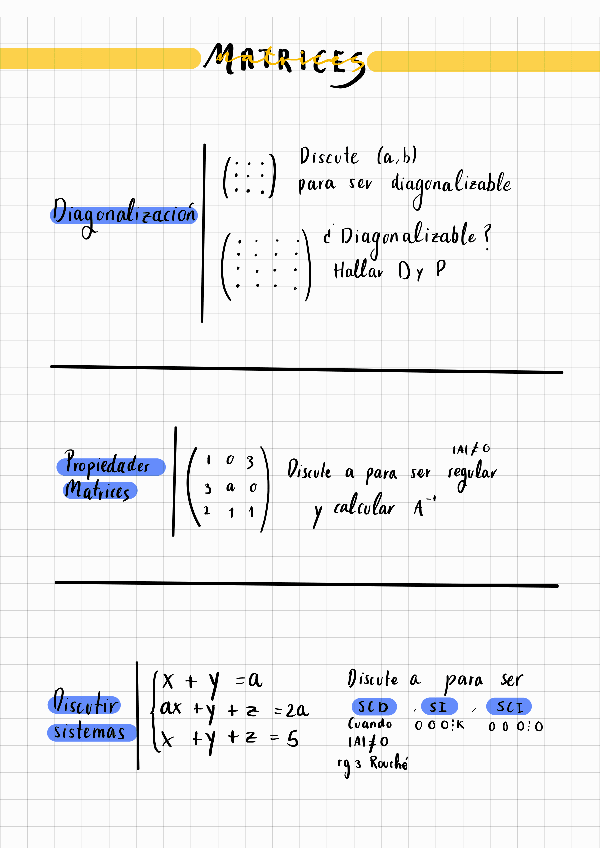 MATRICES
matrices
Diagonalización
Discute (a,b)
para ser diagonalizable
¿Diagonalizable?
Hallar D y P
Propiedader
Matrices
1 0 3
3 a 0
2 1 1
|A|≠0
Discute a para ser regular
y calcular A⁻¹
Discutir
sistemas
x + y = a
ax + y + z = 2a
x + y + z = 5
Discute a para ser
SCD , SI , SCI
Cuando 0 0 0 ⋮ K 0 0 0 ⋮ 0
|A|≠0
rg 3 Rouché